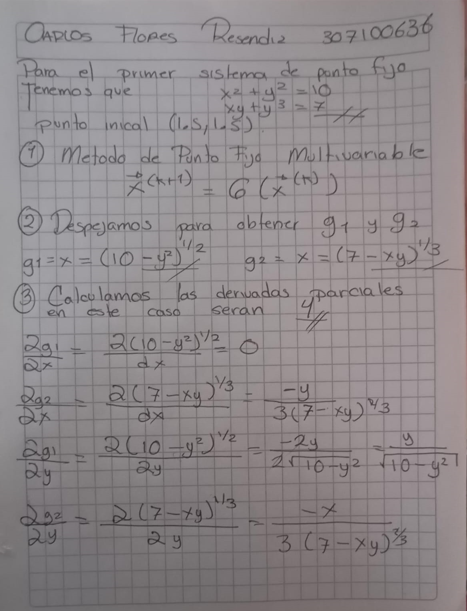 CARLOS FLORES Resendiz 307100636
Para el primer sistema de ponto fijo
Tenemos que x² + y² = 10
xy + y³ = 7
punto inical (1.5, 1.5)
① Metodo de Punto Fijo Multivariable
x^(k+1) = G(x^(k))
② Despejamos para obtener g1 y g2
g1 = x = (10 - y²)^1/2 g2 = x = (7 - xy)^1/3
③ Calculamos las derivadas parciales
en este caso seran 4
∂g1/∂x = ∂(10 - y²)^1/2/dx = 0
∂g2/∂x = ∂(7 - xy)^1/3/dx = -y/3(7 - xy)^2/3
∂g1/∂y = ∂(10 - y²)^1/2/∂y = -2y/2√10 - y² = y/√10 - y²
∂g2/∂y = ∂(7 - xy)^1/3/∂y = -x/3(7 - xy)^2/3